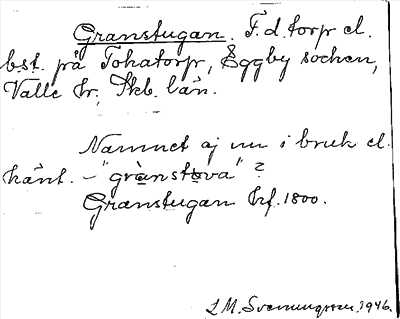 Granstugan. F.d. torp el.
bst. på Tohatorp, Eggby socken,
Valle hr, Skb. län.
Namnet ej nu i bruk el.
känt. – "grànstova" ?
Granstugan hf. 1800.
L M. Svenungsson. 1946.